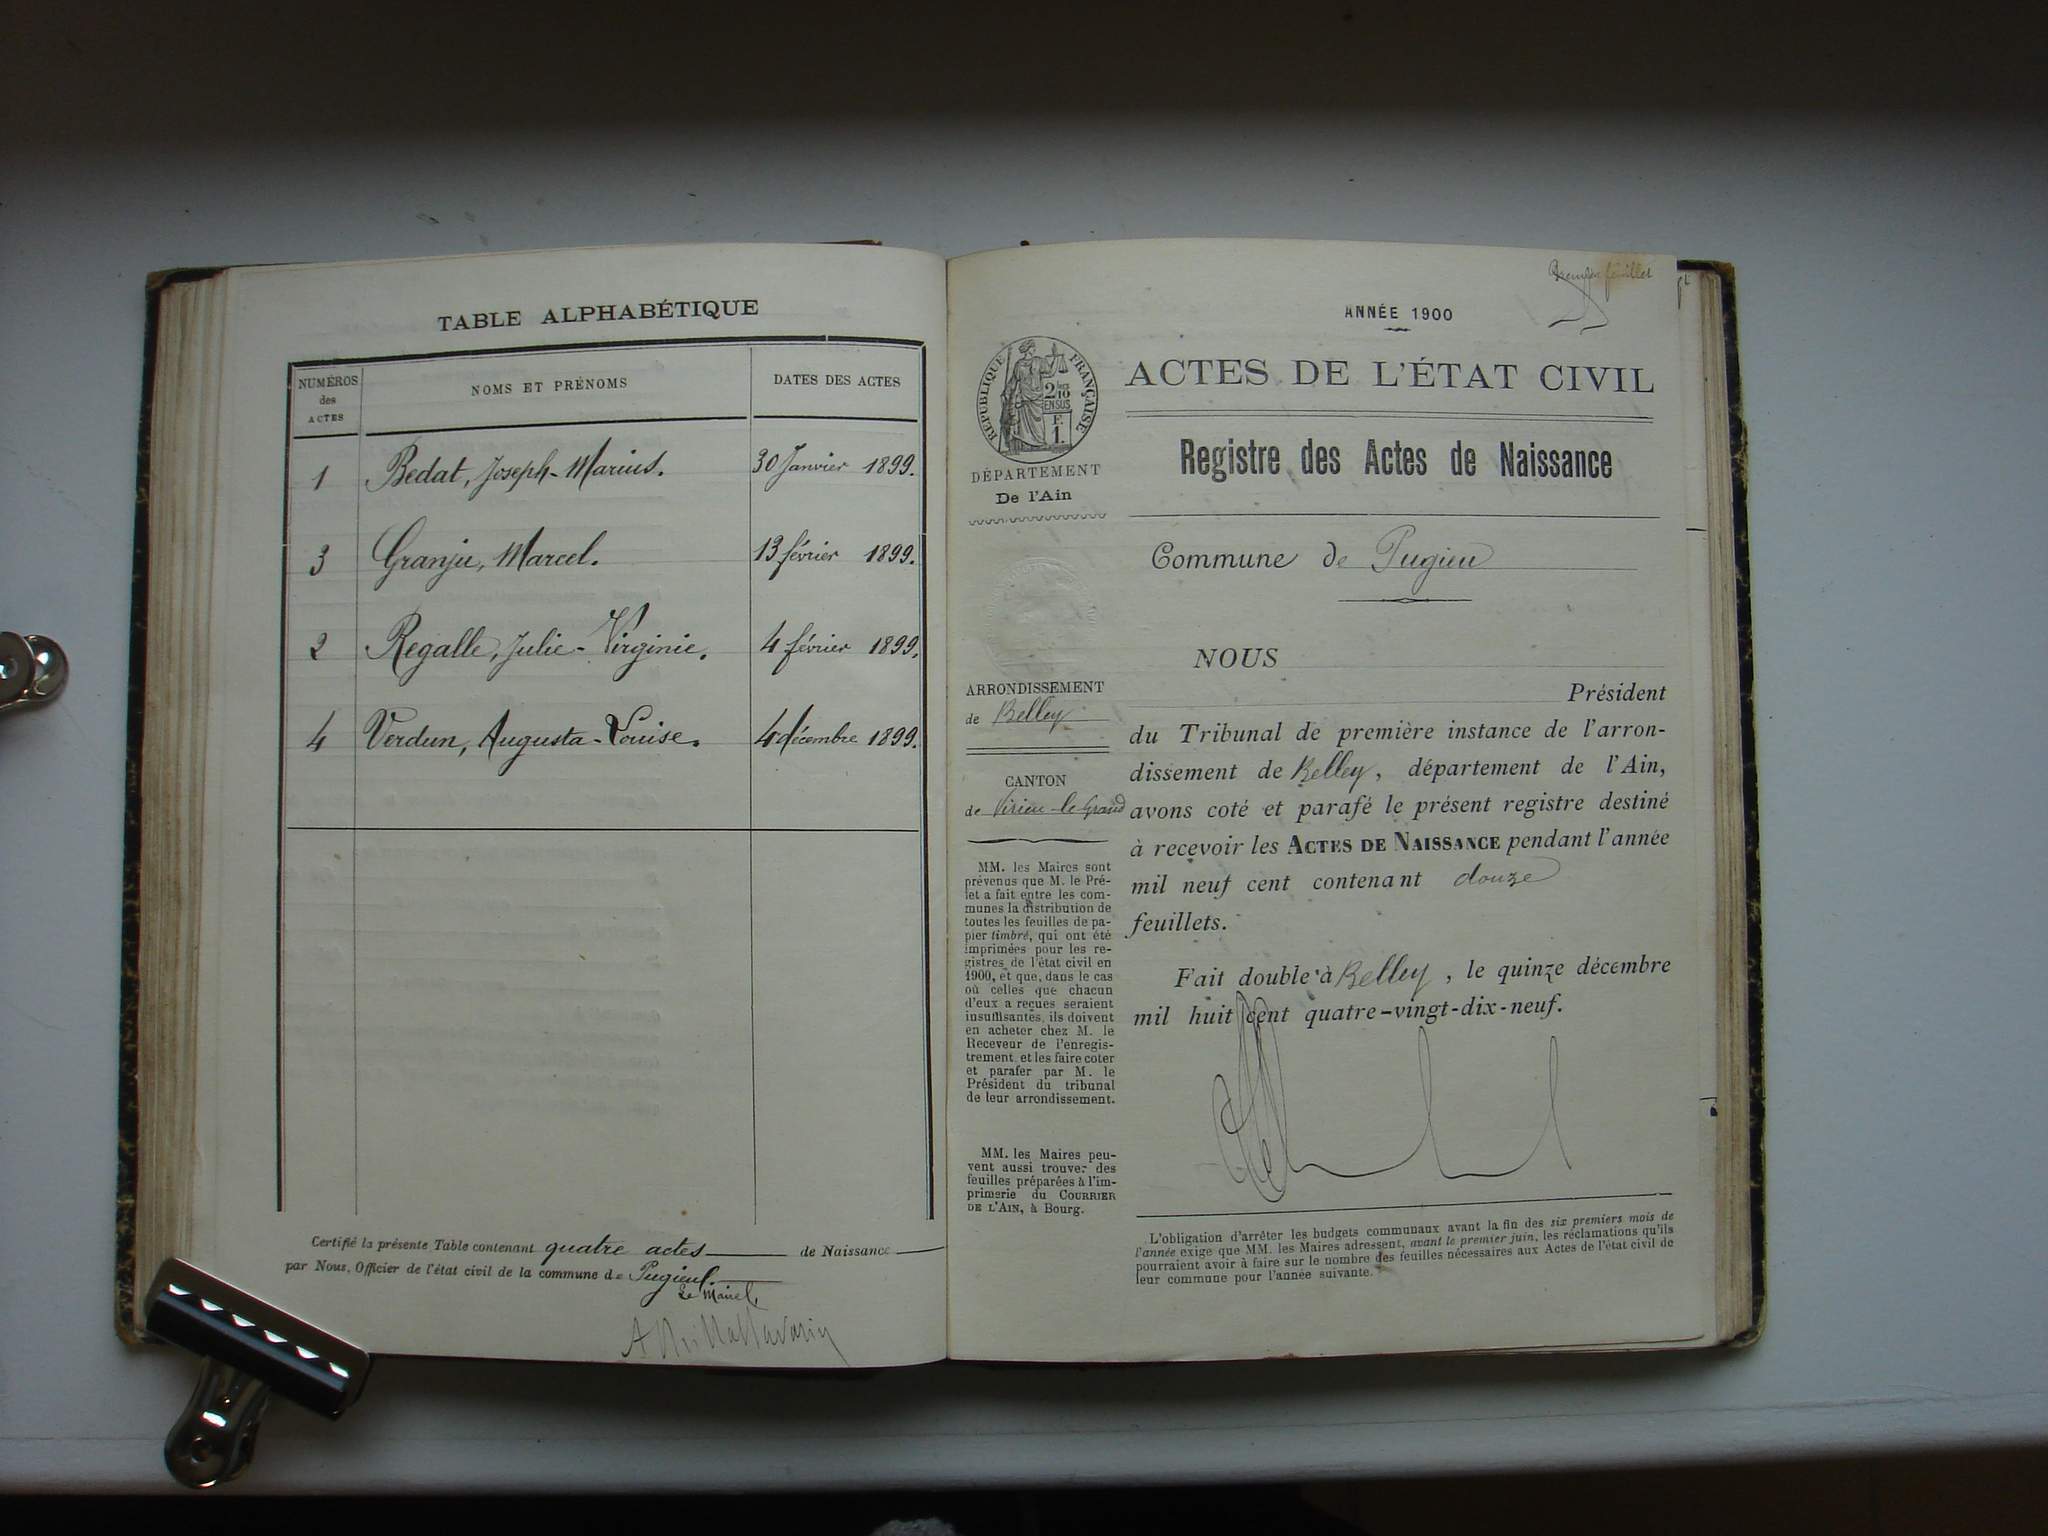 TABLE ALPHABÉTIQUE
NUMÉROS
des
ACTES
NOMS ET PRÉNOMS
DATES DES ACTES
1 Bedat, Joseph-Marius. 30 Janvier 1899.
3 Granju, Marcel. 13 février 1899.
2 Regalle, Julie-Virginie. 4 février 1899.
4 Verdun, Augusta-Louise. 4 décembre 1899.
Certifié la présente Table contenant quatre actes de Naissance
par Nous, Officier de l'état civil de la commune de Pugieu.
Le Maire,
Premier feuillet
ANNÉE 1900
RÉPUBLIQUE FRANÇAISE
2/10
EN SUS
F.
1.
DÉPARTEMENT
De l'Ain
ACTES DE L'ÉTAT CIVIL
Registre des Actes de Naissance
Commune de Pugieu
ARRONDISSEMENT
de Belley
CANTON
de Virieu-le-Grand
MM. les Maires sont
prévenus que M. le Pré-
fet a fait entre les com-
munes la distribution de
toutes les feuilles de pa-
pier timbré, qui ont été
imprimées pour les re-
gistres de l'état civil en
1900, et que, dans le cas
où celles que chacun
d'eux a reçues seraient
insuffisantes, ils doivent
en acheter chez M. le
Receveur de l'enregis-
trement et les faire coter
et parafer par M. le
Président du tribunal
de leur arrondissement.
MM. les Maires peu-
vent aussi trouver des
feuilles préparées à l'im-
primerie du COURRIER
DE L'AIN, à Bourg.
NOUS
Président
du Tribunal de première instance de l'arron-
dissement de Belley, département de l'Ain,
avons coté et parafé le présent registre destiné
à recevoir les ACTES DE NAISSANCE pendant l'année
mil neuf cent contenant douze
feuillets.
Fait double à Belley, le quinze décembre
mil huit cent quatre-vingt-dix-neuf.
L'obligation d'arrêter les budgets communaux avant la fin des six premiers mois de
l'année exige que MM. les Maires adressent, avant le premier juin, les réclamations qu'ils
pourraient avoir à faire sur le nombre des feuilles nécessaires aux Actes de l'état civil de
leur commune pour l'année suivante.